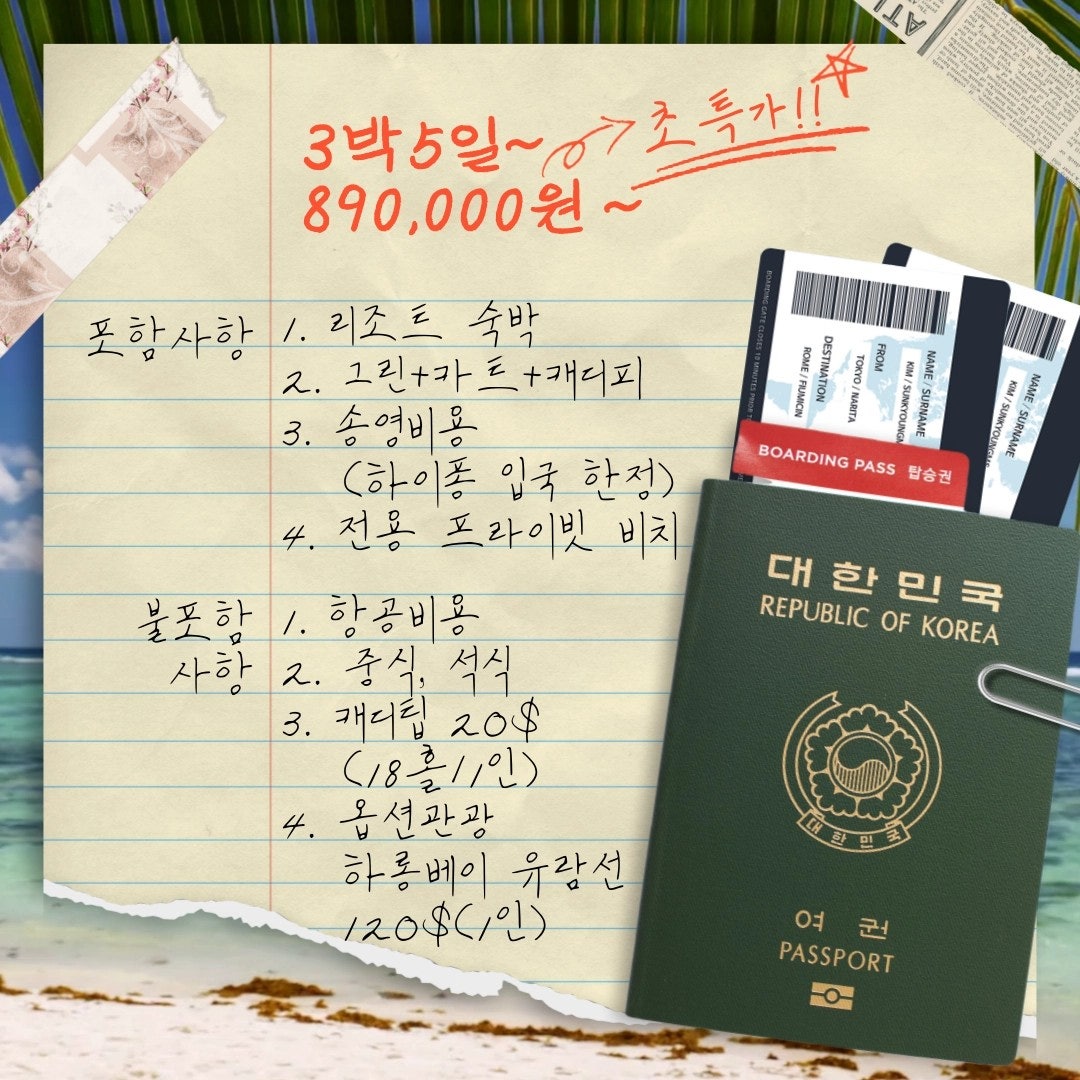 3박5일~ 초특가!!
890,000원~
포함사항 1. 리조트 숙박
2. 그린+카트+캐디피
3. 송영비용
(하이퐁 입국 한정)
4. 전용 프라이빗 비치
불포함 1. 항공비용
사항 2. 중식, 석식
3. 캐디팁 20$
(18홀/1인)
4. 옵션관광
하롱베이 유람선
120$(1인)
BOARDING GATE CLOSES 10 MINUTES PRIOR
NAME / SURNAME
KIM / SUNKYOUNG
FROM
TOKYO / NARITA
DESTINATION
ROME / FIUMICIN
NAME / SURNAME
KIM / SUNKYOUNG
BOARDING PASS 탑승권
대한민국
REPUBLIC OF KOREA
대한민국
여권
PASSPORT